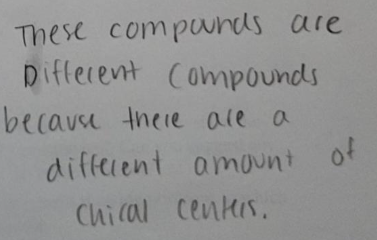 These compounds are
Different Compounds
because there are a
different amount of
chiral centers.